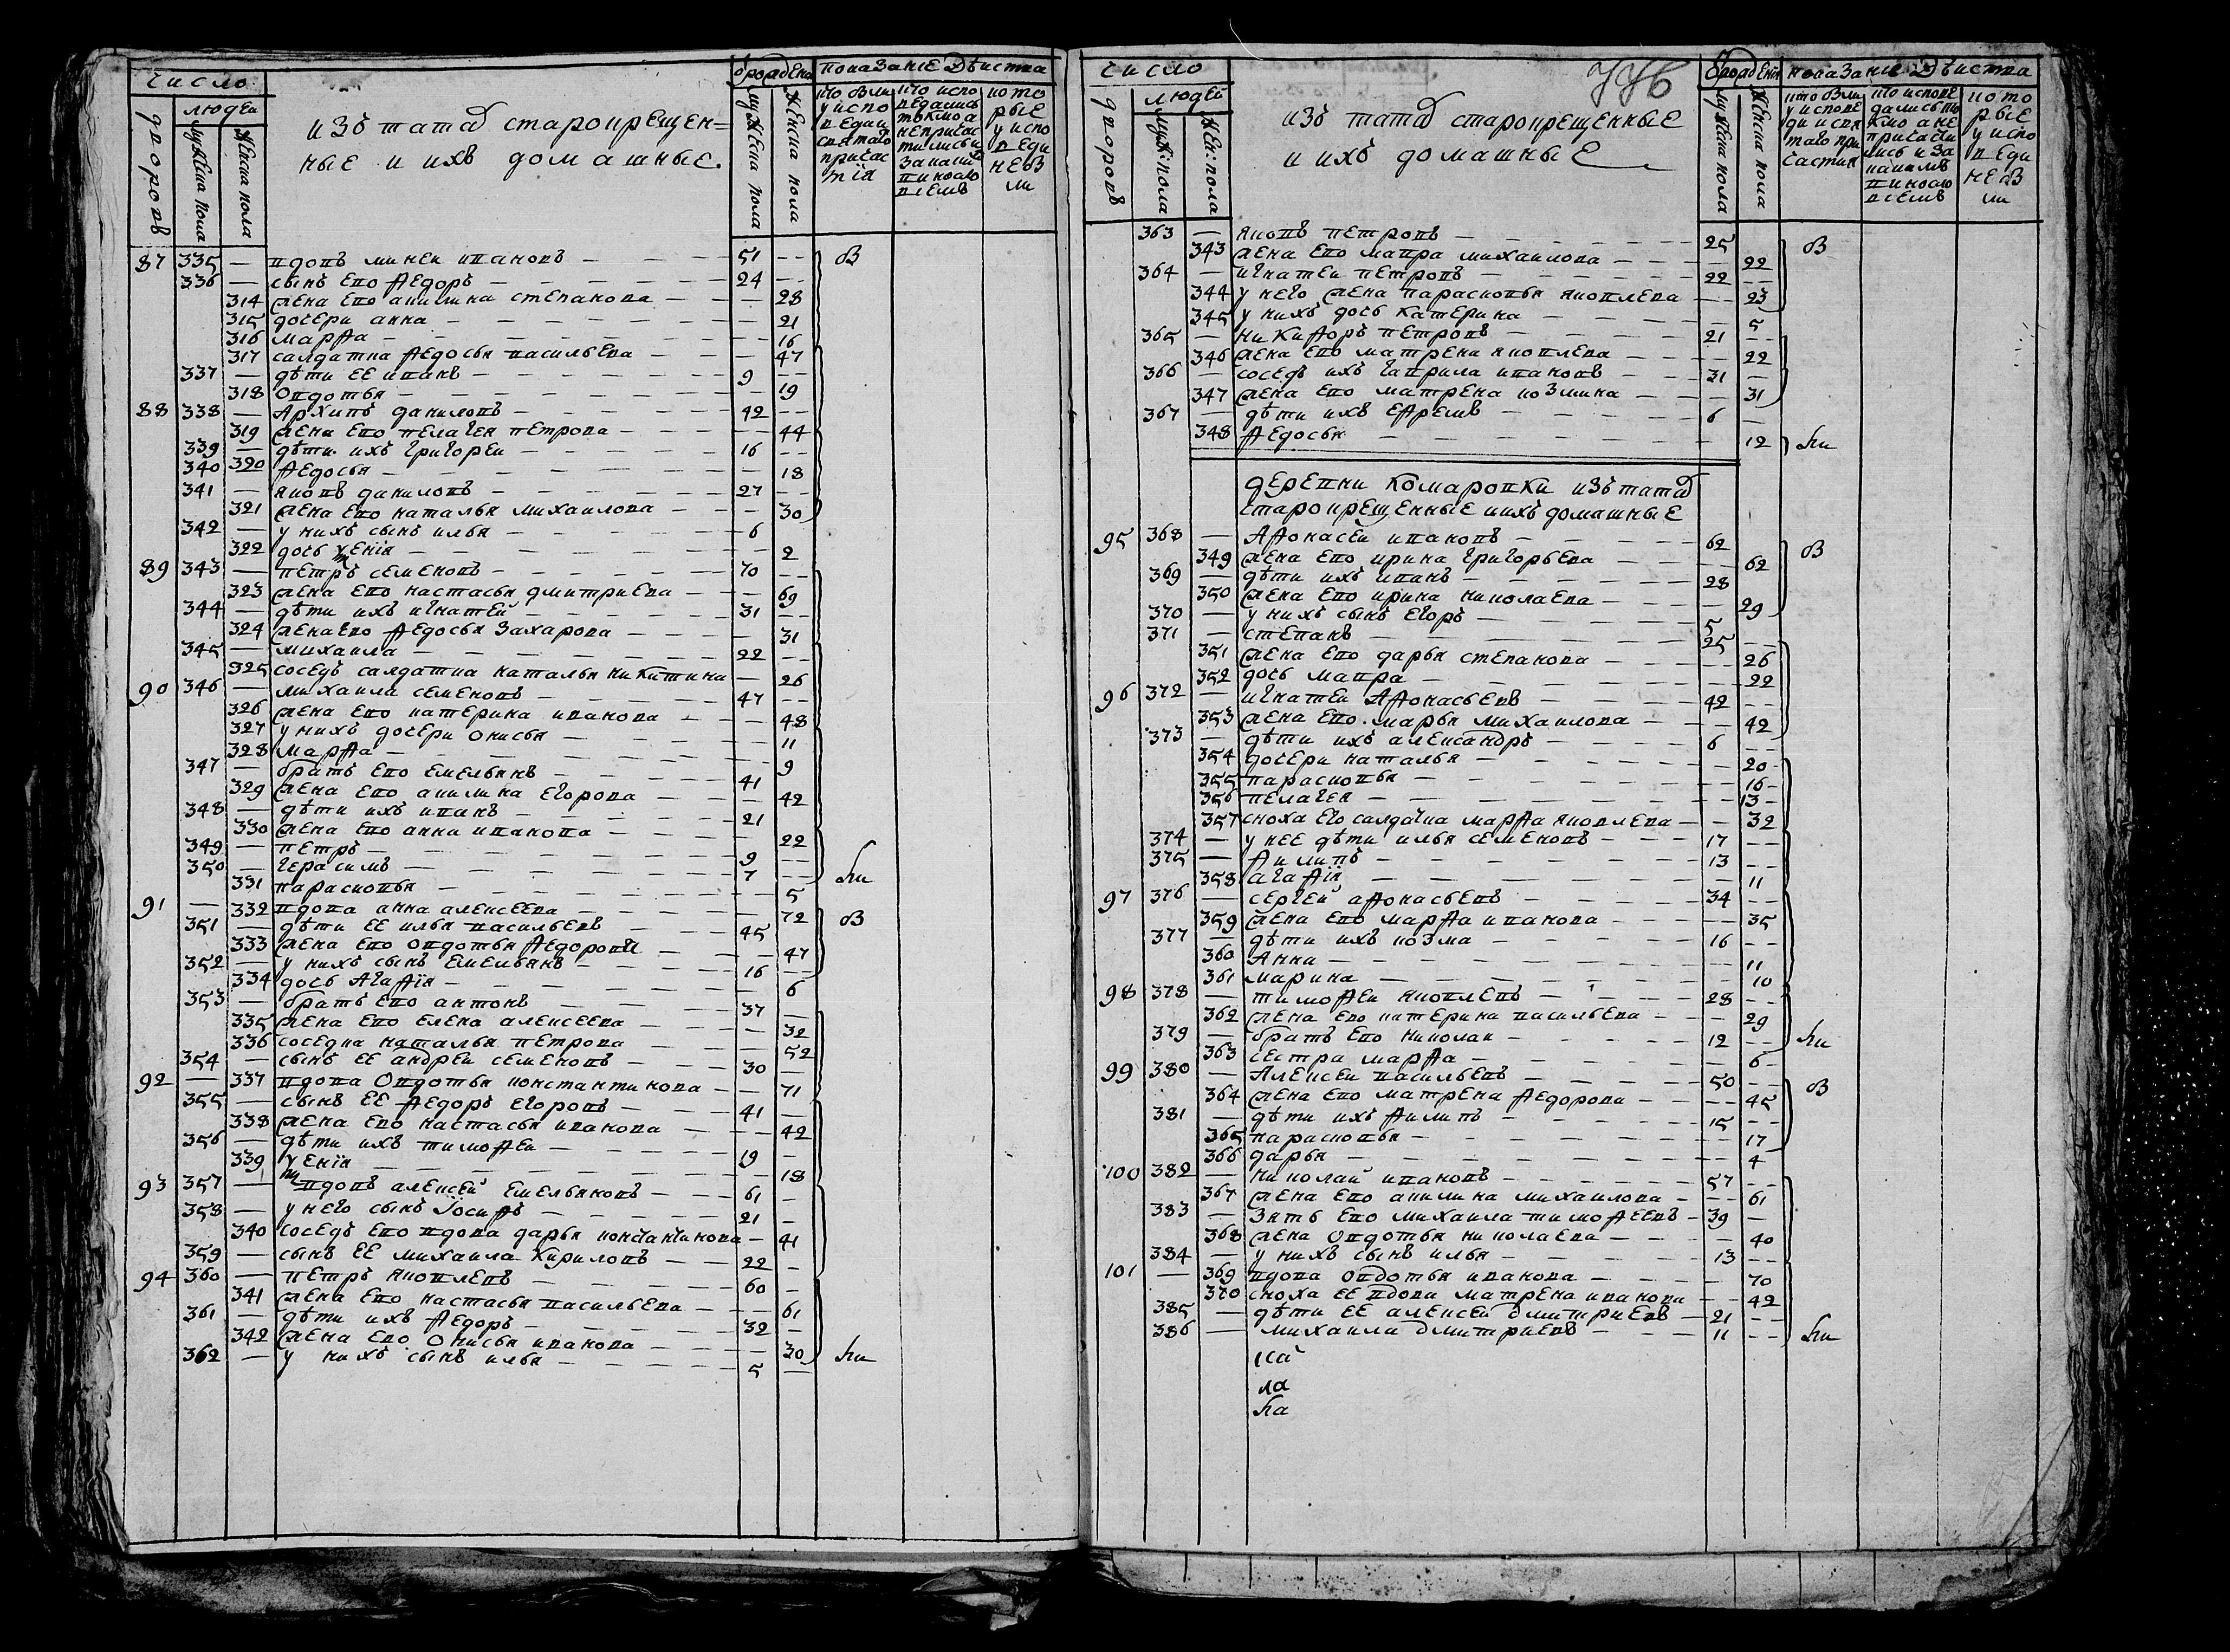 число
людей
дворовъ
мужеска пола
женска пола
изъ татаръ старокрещен=
ные и ихъ домашные.
от рождения
мужеска пола
женска пола
показание действа
кто были у исповеди и святаго причастия
кто исповедались токмо а не причастились и за каким виновословием
которые у исповеди не были
87 335 — вдовъ минеи ивановъ — 51 — Б
336 — сынъ его ѳедоръ — 24 —
314 жена его акилина степанова — 28
315 дочери анна — 21
316 марѳа — 16
317 салдатка ѳедосья васильева — 47
337 — дѣти ее иванъ — 9 —
318 овдотья — 19
88 338 — архипъ даниловъ — 42 —
319 жена его пелагея петрова — 44
339 — дѣти ихъ григореи — 16 —
340 320 ѳедосья — 18
341 — яковъ даниловъ — 27 —
321 жена его наталья михаилова — 30
342 — у нихъ сынъ илья — 6
322 дочь ксения — 2
89 343 — петръ семеновъ — 70 —
323 жена его настасья дмитриева — 69
344 — дѣти ихъ игнатей — 31 —
324 жена его ѳедосья захарова — 31
345 — михаила — 22 —
325 соседъ салдатка наталья никитина — 26
90 346 — михаила семеновъ — 47 —
326 жена его катерина иванова — 48
327 у нихъ дочери онисья — 11
328 марѳа — 9
347 — братъ его емельянъ — 41
329 жена его акилина егорова — 42
348 — дѣти ихъ иванъ — 21
330 жена его анна иванова — 22
349 — петръ — 9 —
350 — герасимъ — 7 — ли
331 парасковья — 5
91 — 332 вдова анна алексеева — 72 Б
351 — дѣти ее илья васильевъ — 45
333 жена его овдотья ѳедорова — 47
352 — у нихъ сынъ емельянъ — 16 —
334 дочь агаѳiя — 6
353 — братъ его антонъ — 37 —
335 жена его елена алексеева — 32
336 соседка наталья петрова — 52
354 — сынъ ее андреи семеновъ — 30 —
92 — 337 вдова овдотья константинова — 71
355 — сынъ ее ѳедоръ егоровъ — 41 —
338 жена его настасья иванова — 42
356 — дѣти ихъ тимоѳеи — 19 —
339 ксенiя — 18
93 357 — вдовъ алексей емельяновъ — 61 —
358 — у него сынъ iосиѳъ — 21 —
340 соседъ его вдова дарья константинова — 41
359 — сынъ ее михаила кириловъ — 22 —
94 360 — петръ яковлевъ — 60 —
341 жена его настасья васильева — 61
361 — дѣти ихъ ѳедоръ — 32 —
342 жена его онисья иванова — 30 ли
362 — у нихъ сынъ илья — 5 —
число
людей
дворовъ
муж: пола
жен: пола
изъ татаръ старокрещенные
и ихъ домашные
от рождения
мужеска пола
женска пола
показание действа
кто были у исповеди и святаго причастия
кто исповедались токмо а не причастились и за каким виновословием
которые у исповеди не были
363 — яковъ петровъ — 25 Б
343 жена его мавра михаилова — 22
364 — игнатеи петровъ — 22 —
344 у него жена парасковья яковлева — 23
345 у нихъ дочь катерина — 5
365 — никиѳоръ петровъ — 21 —
346 жена его матрена яковлева — 22
366 — соседъ ихъ гаврила ивановъ — 31 —
347 жена его матрена козмина — 31
367 — дѣти ихъ еѳремъ — 6 —
348 ѳедосья — 12 ли
деревни комаровки изъ татаръ
старокрещенные и ихъ домашные
95 368 — аѳонасеи ивановъ — 62 Б
349 жена его ирина григорьева — 62
369 — дѣти ихъ иванъ — 28
350 жена его ирина николаева — 29
370 — у нихъ сынъ егоръ — 5
371 — степанъ — 25 —
351 жена его дарья степанова — 26
352 дочь мавра — 22
96 372 — игнатеи аѳонасьевъ — 42 —
353 жена его марья михаилова — 42
373 — дѣти ихъ александръ — 6 —
354 дочери наталья — 20
355 парасковья — 16
356 пелагея — 13
357 сноха его салдатка марѳа яковлева — 32
374 — у нее дѣти илья семеновъ — 17 —
375 — ѳилипъ — 13 —
358 агаѳiя — 11
97 376 — сергей аѳонасьевъ — 34 —
359 жена его марѳа иванова — 35
377 — дѣти ихъ козма — 16 —
360 анна — 11
361 марина — 10
98 378 — тимоѳеи яковлевъ — 28 —
362 жена его катерина васильева — 29
379 — братъ его николаи — 12 — ли
363 сестра марѳа — 6
99 380 — алексеи васильевъ — 50 — Б
364 жена его матрена ѳедорова — 45
381 — дѣти ихъ ѳилипъ — 15 —
365 парасковья — 17
366 дарья — 4
100 382 — николай ивановъ — 57 —
367 жена его акилина михаилова — 61
383 — зять его михаила тимоѳеевъ — 39 —
368 жена овдотья николаева — 40
384 — у нихъ сынъ илья — 13 —
101 — 369 вдова овдотья иванова — 70
370 сноха ее вдова матрена иванова — 42
385 — дѣти ее алексеи дмитриевъ — 21 —
386 — михаила дмитриевъ — 11 — ли